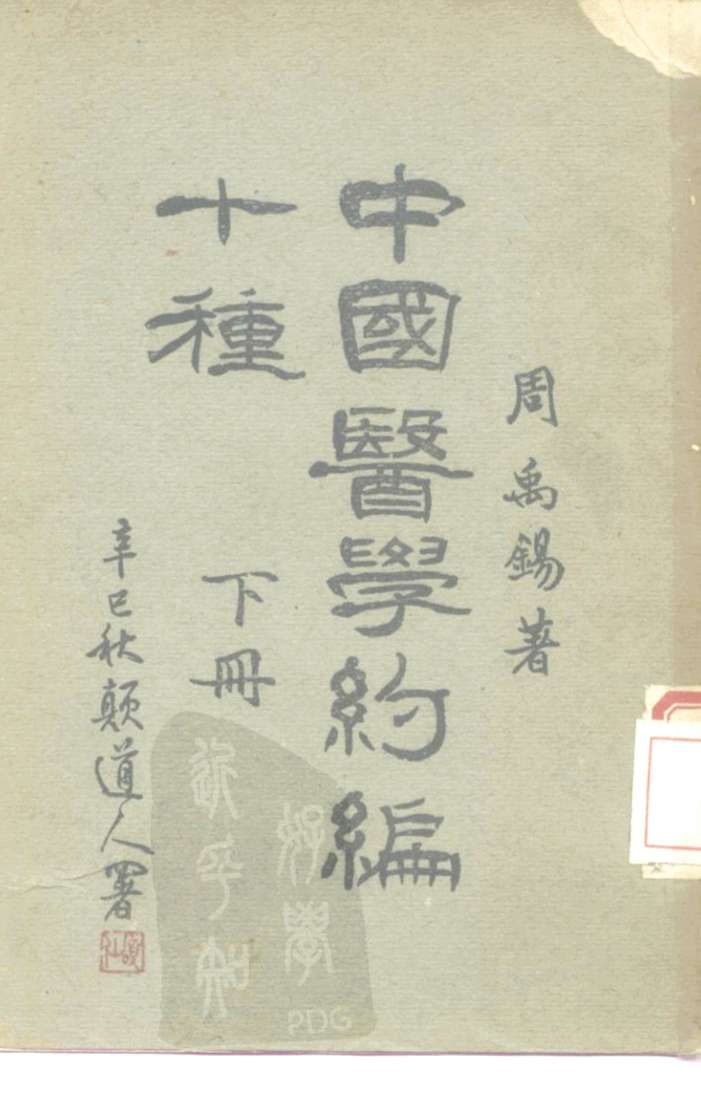 周禹錫著
中國醫學約編
十種
下冊
辛巳秋顛道人署
PDG